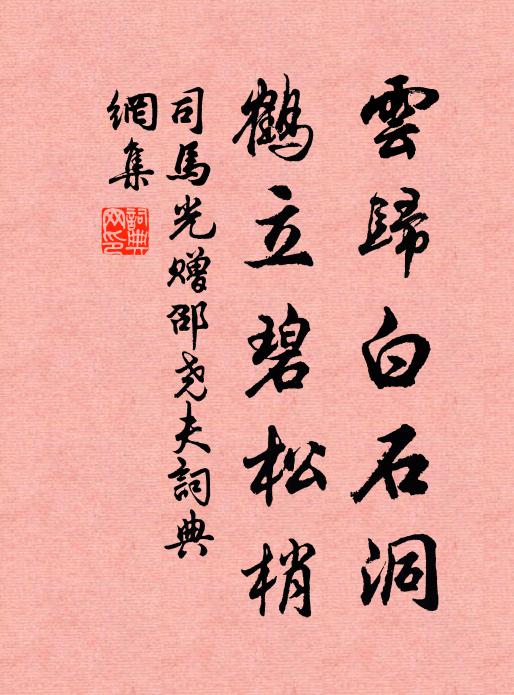 雲歸白石洞
鶴立碧松梢
司馬光贈邵尧夫詞典
網集
詞典
网印